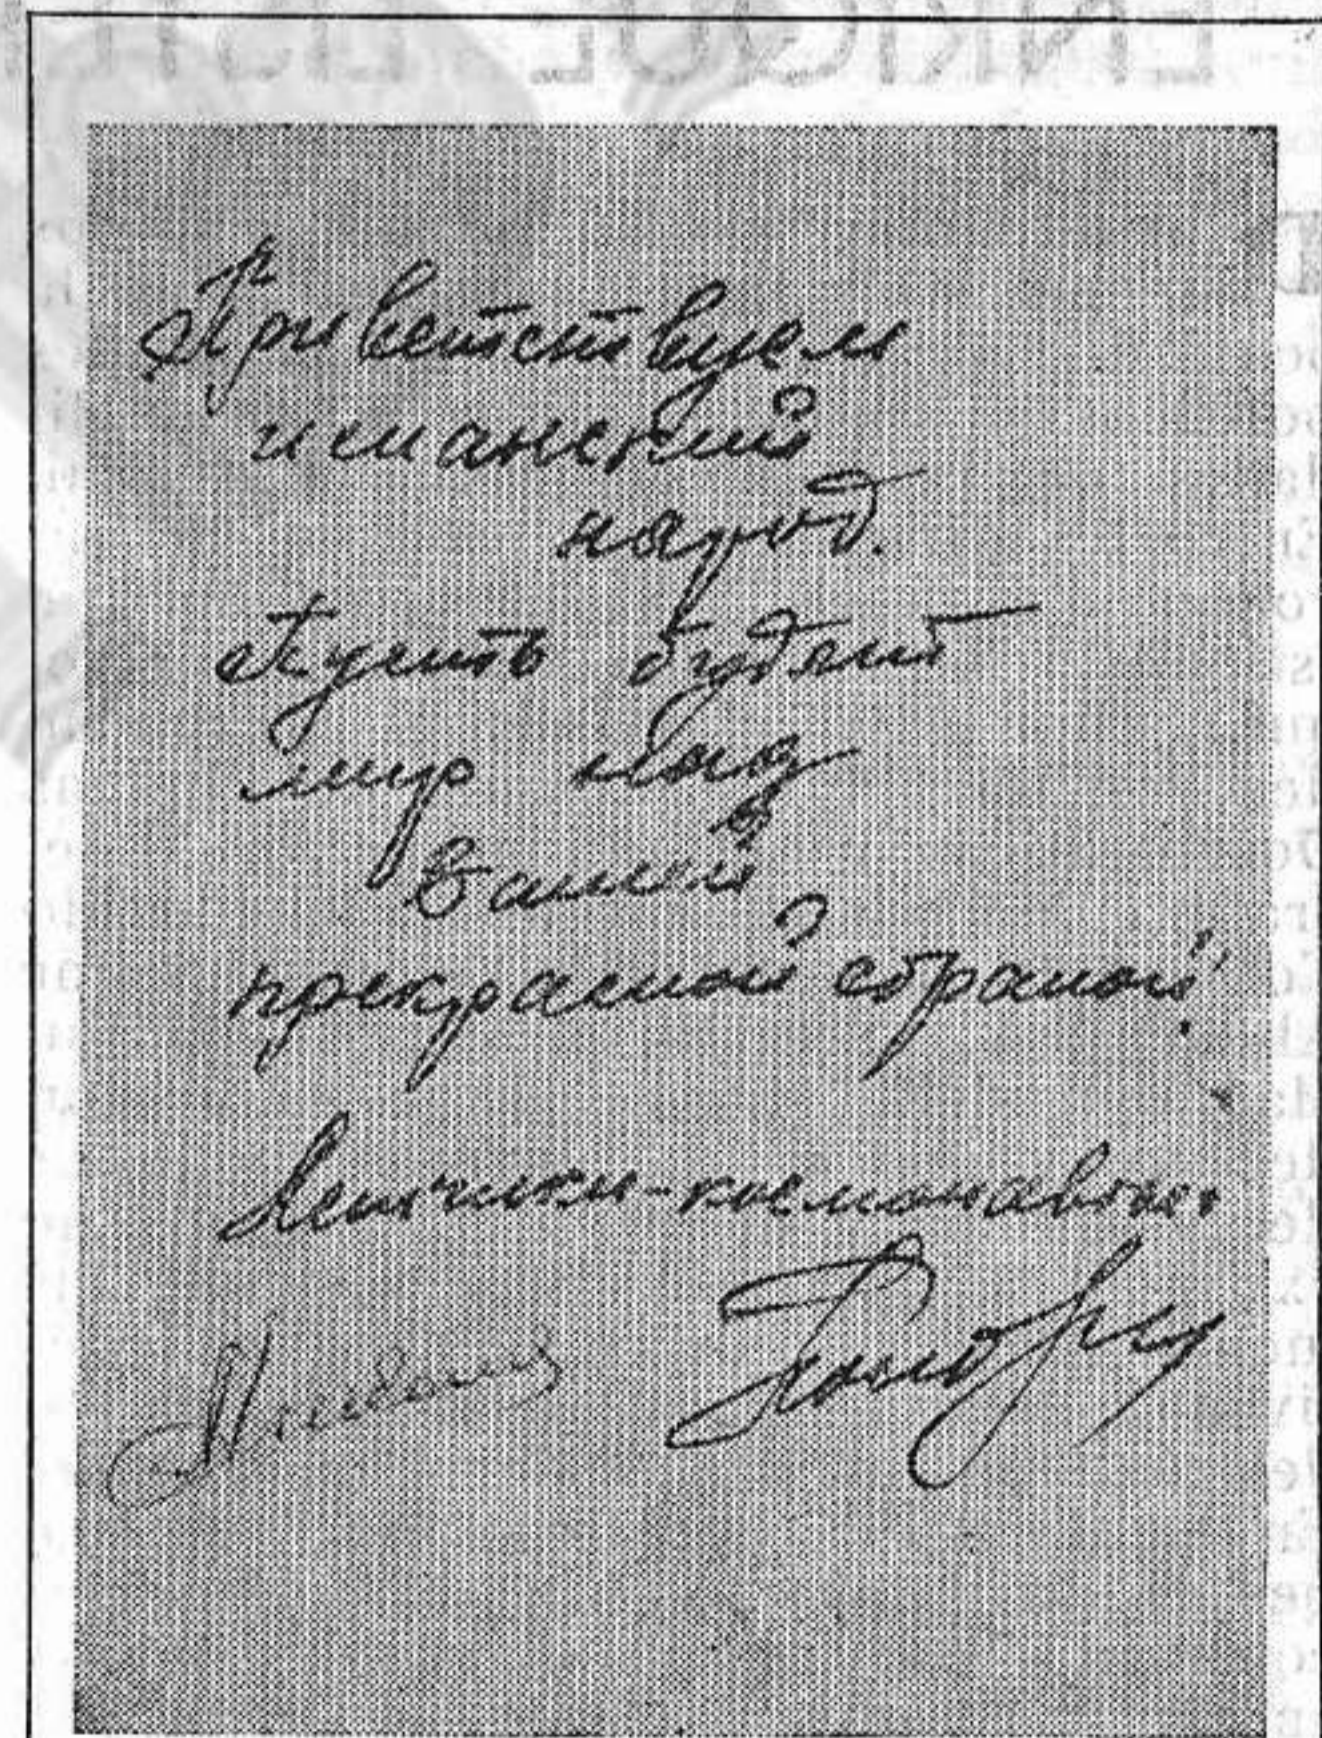 Приветствуем
испанский
народ.
Пусть будет
мир над
Вашей
прекрасной страной!
Летчики-космонавты